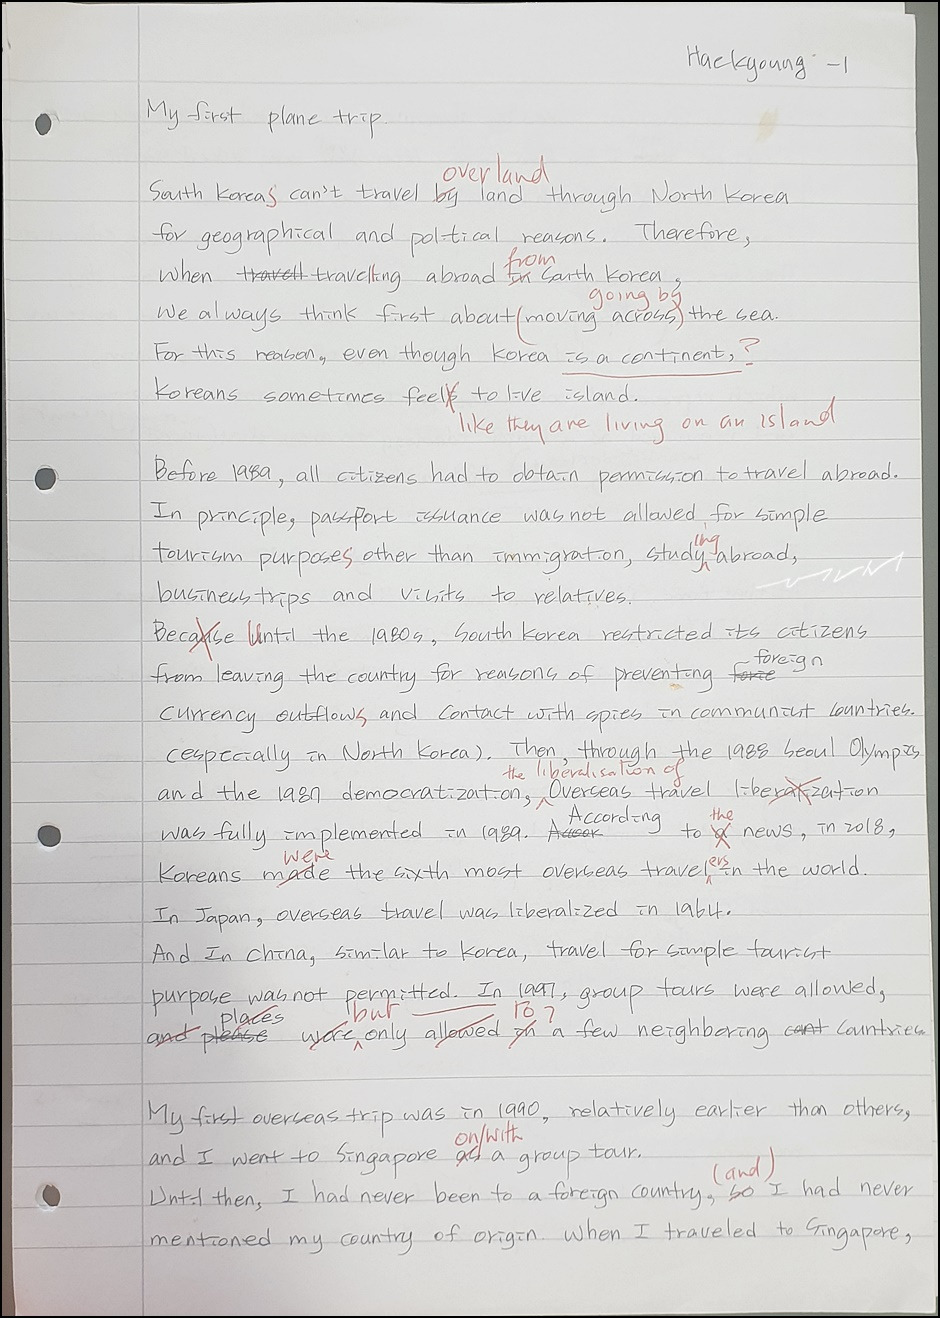 Haekyoung -1
My first plane trip.
overland
South Koreas can't travel by land through North Korea
for geographical and political reasons. Therefore,
from
when travell travelling abroad in South Korea,
going by
we always think first about (moving across) the sea.
For this reason, even though Korea is a continent, ?
Koreans sometimes feels to live island.
like they are living on an island
Before 1989, all citizens had to obtain permission to travel abroad.
In principle, passport issuance was not allowed for simple
ing
tourism purposes other than immigration, study abroad,
business trips and visits to relatives.
Because Until the 1980s, South Korea restricted its citizens
foreign
from leaving the country for reasons of preventing
currency outflows and contact with spies in communist countries.
(especially in North Korea). Then, through the 1988 Seoul Olympics
the liberalisation of
and the 1987 democratization, Overseas travel liberalization
According the
was fully implemented in 1989. to a news, in 2018,
were ers
Koreans made the sixth most overseas travel in the world.
In Japan, overseas travel was liberalized in 1964.
And In China, similar to Korea, travel for simple tourist
purpose was not permitted. In 1997, group tours were allowed,
places but to?
and please were only allowed in a few neighboring cont countries
My first overseas trip was in 1990, relatively earlier than others,
on/with
and I went to Singapore as a group tour.
(and)
Until then, I had never been to a foreign country, so I had never
mentioned my country of origin. When I traveled to Singapore,